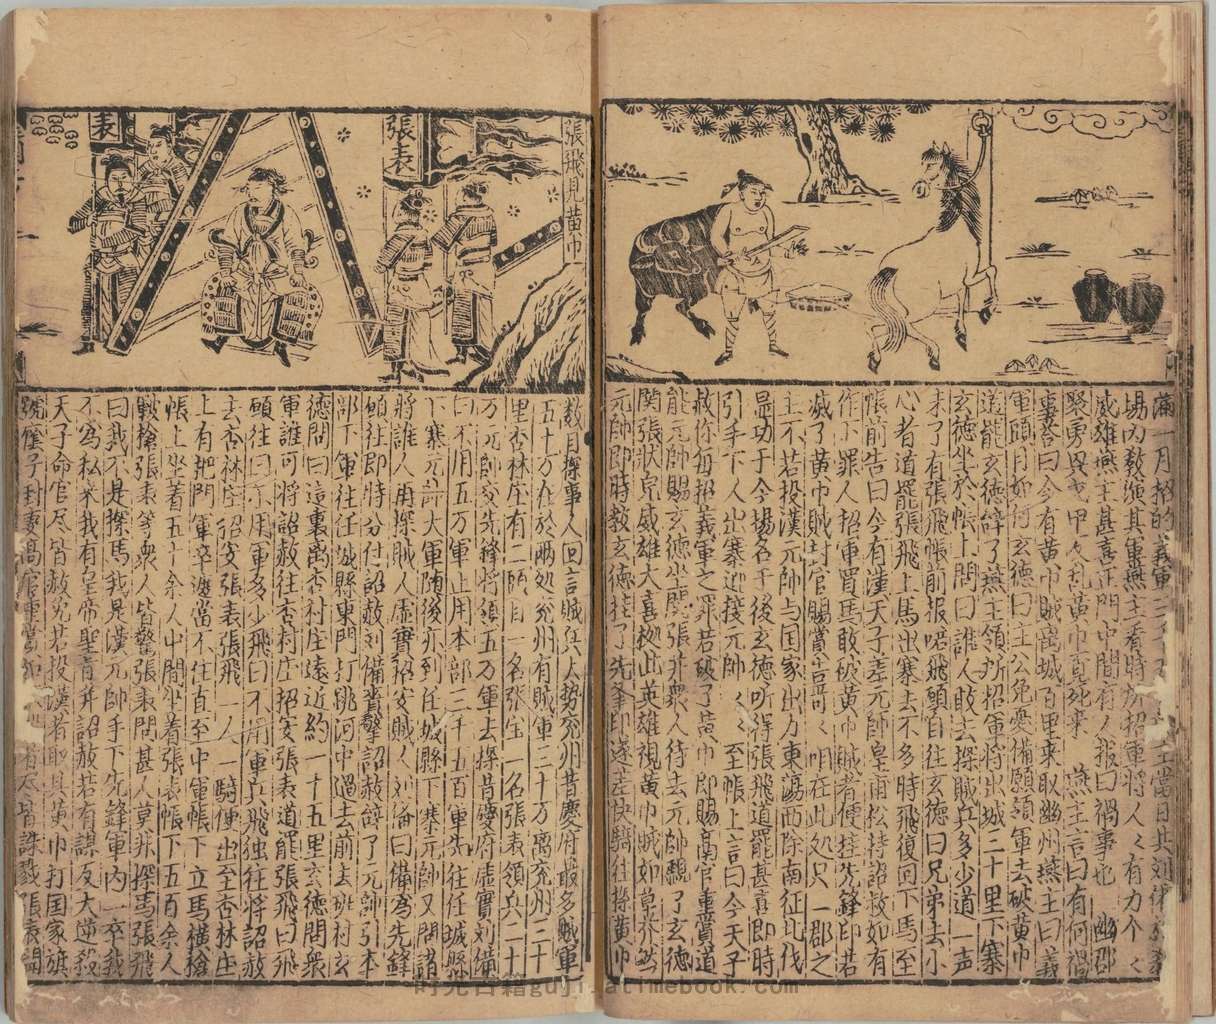 滿一月招的義軍三千五
場內教演其軍燕主看時所招軍將人〻有力个〻
威雄燕主甚喜正門中間有人報曰禍事也 幽郡
燕主言曰有何禍
事答曰今有黃巾賊离城百里来取幽州燕主曰義
軍頭目如何玄德曰主公免憂備願領軍去破黃巾
送能玄德辞了燕主領所招軍將出城三十里下寨
玄德坐於帳上問曰誰人敢去探賊兵多少道一声
未了有張飛帳前報喏飛願自往玄德曰兄弟去小
心者道罷張飛上馬出寨去不多時飛復回下馬至
帳前告曰今有漢天子差元帥皇甫松持詔赦如有
作下罪人招軍買馬敢破黃巾賊者便挂先鋒印若
滅了黃巾賊封官賜賞哥〻咱在此处只一郡之
主不若投漢元帥与国家出力東蕩西除南征北伐
是功于今場名于後玄德听得張飛道罷甚喜即時
引手下人出寨迎接元帥〻〻至帳上言曰今天子
赦你每招義軍之罪若破了黃巾即賜高官重賞道
能元帥賜玄德坐関張并衆人待去元帥覷了玄德
関張狀皃威雄大喜拠此英雄視黃巾賊如草芥然
元帥即時教玄德挂了先鋒印遂差快騎往探黃巾
張飛見黃巾
張表
表
數月探事人回言賊兵大勢兖州昔慶府最多賊軍
五十万在於兩处兖州有賊軍三十万离兖州二十
里杏林庄有二頭目一名張宝一名張表領兵二十
万元帥交先鋒將領五万軍去探昔慶府虛實刘備
曰不用五万軍止用本部三千五百軍先往任城縣
下寨元帥大軍随後亦到任城縣下寨元帥又問諸
將誰人用探賊人虛實招安賊人刘備曰備為先鋒
願往即時分付詔赦刘備賫擎詔赦辞了元帥引本
部下軍往任城縣東門打跳河中過去前去班村玄
德問曰這里离杏村庄遠近約一十五里玄德問衆
軍誰可將詔赦往杏村庄招安張表道罷張飛曰飛
願往曰用軍多少飛曰不用軍兵飛独往將詔赦
去杏林庄招安張表張飛一人一騎便出至杏林庄
上有把門軍卒遮當不住直至中軍帳下立馬橫槍
帳上坐着五十余人中間坐着張表帳下五百余人
軟槍張表等衆人皆驚張表問甚人莫非探馬張飛
曰我不是探馬我是漢元帥手下先鋒軍內一卒我
不為私来我有皇帝聖旨并詔赦若有謀反大逆殺
天子命官尽皆赦免若投漢者取其黃巾打国家旗
號䕃子封妻高官重賞如 者尽皆誅戮張表聞
时光古籍guji.atimebook.com